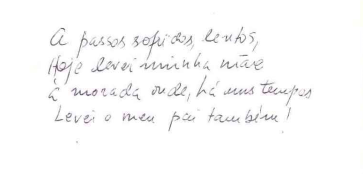 A passos sofridos, lentos,
Hoje levei minha mãe
à morada onde, há uns tempos
Levei o meu pai também!